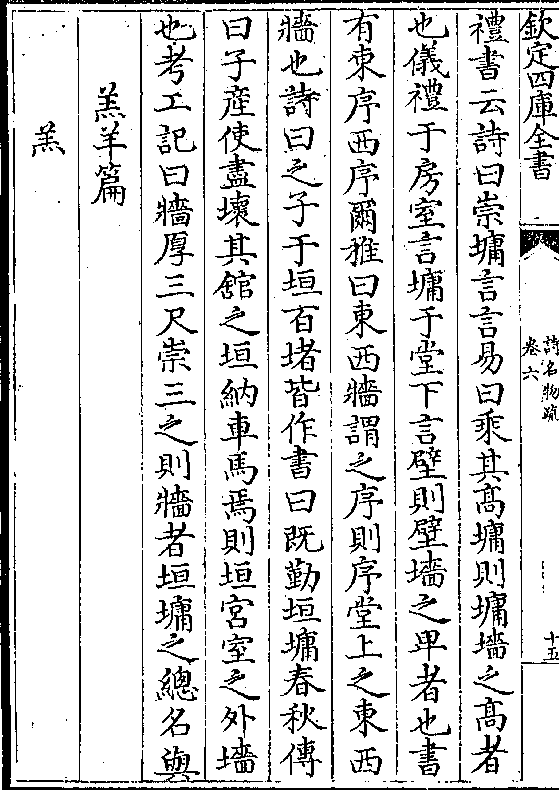 欽定四庫全書
詩名物疏
卷六
十五
禮書云詩曰崇墉言言易曰乘其髙墉則墉墻之髙者
也儀禮于房室言墉于堂下言壁則壁墻之卑者也書
有東序西序爾雅曰東西牆謂之序則序堂上之東西
牆也詩曰之子于垣百堵皆作書曰既勤垣墉春秋傳
曰子産使盡壞其舘之垣納車馬焉則垣宮室之外墻
也考工記曰牆厚三尺崇三之則牆者垣墉之總名與
羔羊篇
羔